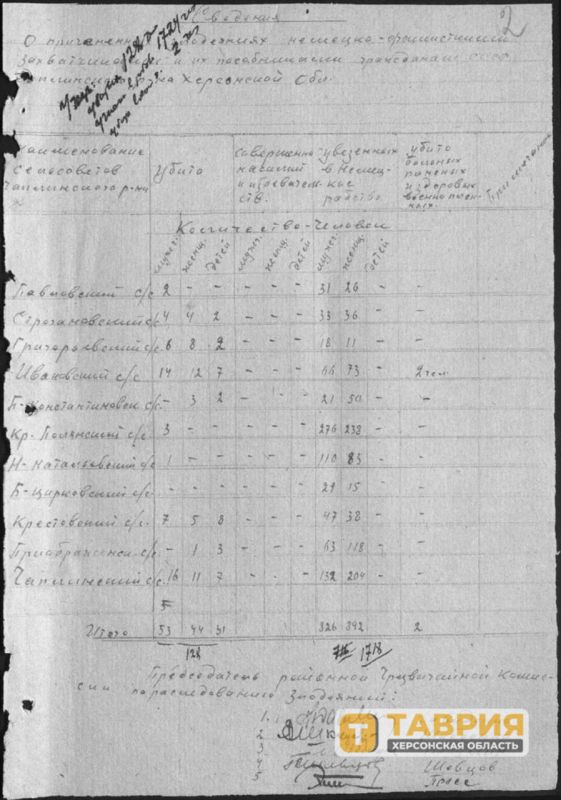 Сведения
2
О причиненных злодеяниях немецко-фашистскими
захватчиками и их пособниками гражданам СССР
Чаплинского р-на Херсонской Обл.
128
1724
Наименование сельсоветов Чаплинского р-на
Убито
Совершенно насилий и издевательств.
увезенных в немецкое рабство
убито больных раненых и здоровых военнопленных.
Примечание
Количество-Человек
мужч. женщ. детей мужч. женщ. детей мужч. женщ. детей
Павловский с/с 2 - - - - - 31 26 - -
Строгановский с/с 4 4 2 - - - 33 36 - -
Григорьевский с/с 6 8 2 - - - 18 11 - -
Ивановский с/с 14 12 7 - - - 66 73 - 2 чел
Б-Константиновск с/с - 3 2 - - - 21 50 - -
Кр. Полянский с/с 3 - - - - - 276 238 - -
Н-Натальевский с/с 1 - - - - - 110 83 - -
Б-Цирковский с/с - - - - - - 29 15 - -
Крестовский с/с 7 5 8 - - - 47 38 - -
Приображенск с/с - 1 3 - - - 63 118 - -
Чаплинский с/с 16 11 7 - - - 132 204 - -
Итого 53 44 31 826 892 2
128 1718
Председатель районной Чрезвычайной Комис-
сии по расследованию Злодеяний:
1.
2
3
4 Шевцов
5
ТАВРИЯ
ХЕРСОНСКАЯ ОБЛАСТЬ